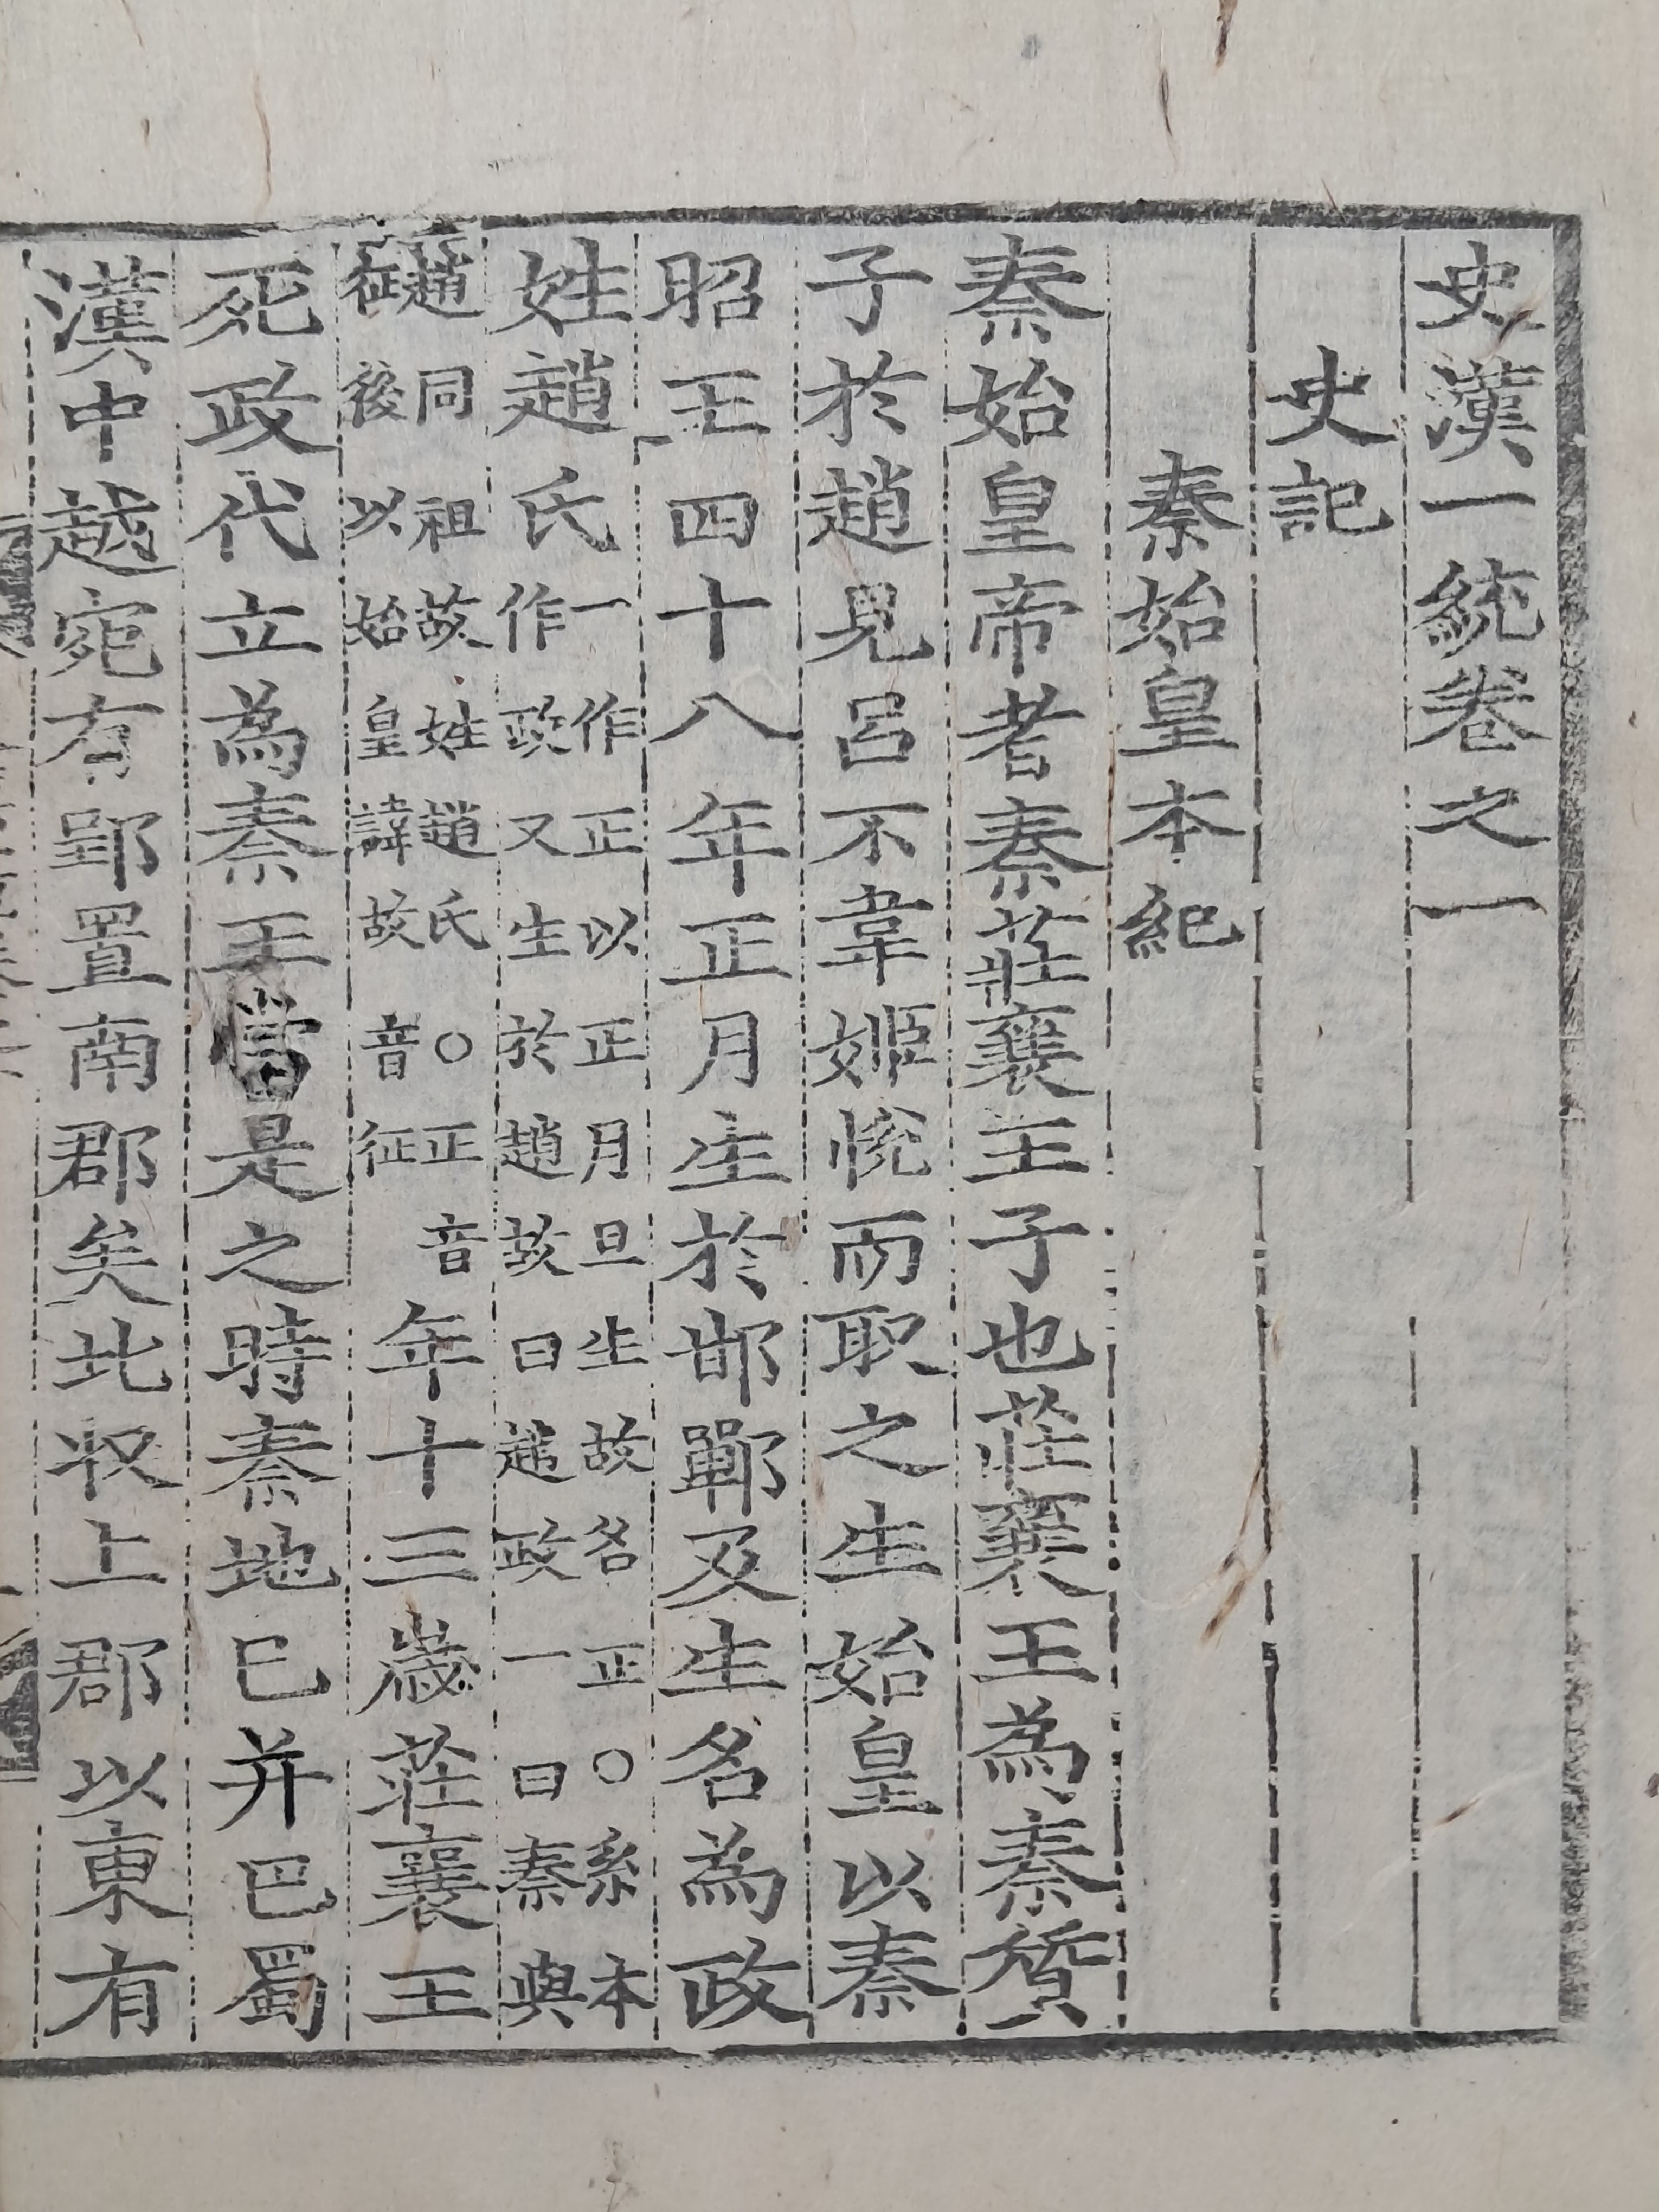 史漢一統卷之一
史記
秦始皇本紀
秦始皇帝者秦莊襄王子也莊襄王為秦質
子於趙見呂不韋姬悅而取之生始皇以秦
昭王四十八年正月生於邯鄲及生名為政
姓趙氏
一作正以正月旦生故名正○系本
作政又生於趙故曰趙政一曰秦與
趙同祖故姓趙氏○正音
征後以始皇諱故音征
年十三歲莊襄王
死政代立為秦王當是之時秦地巳并巴蜀
漢中越宛有郢置南郡矣北収上郡以東有